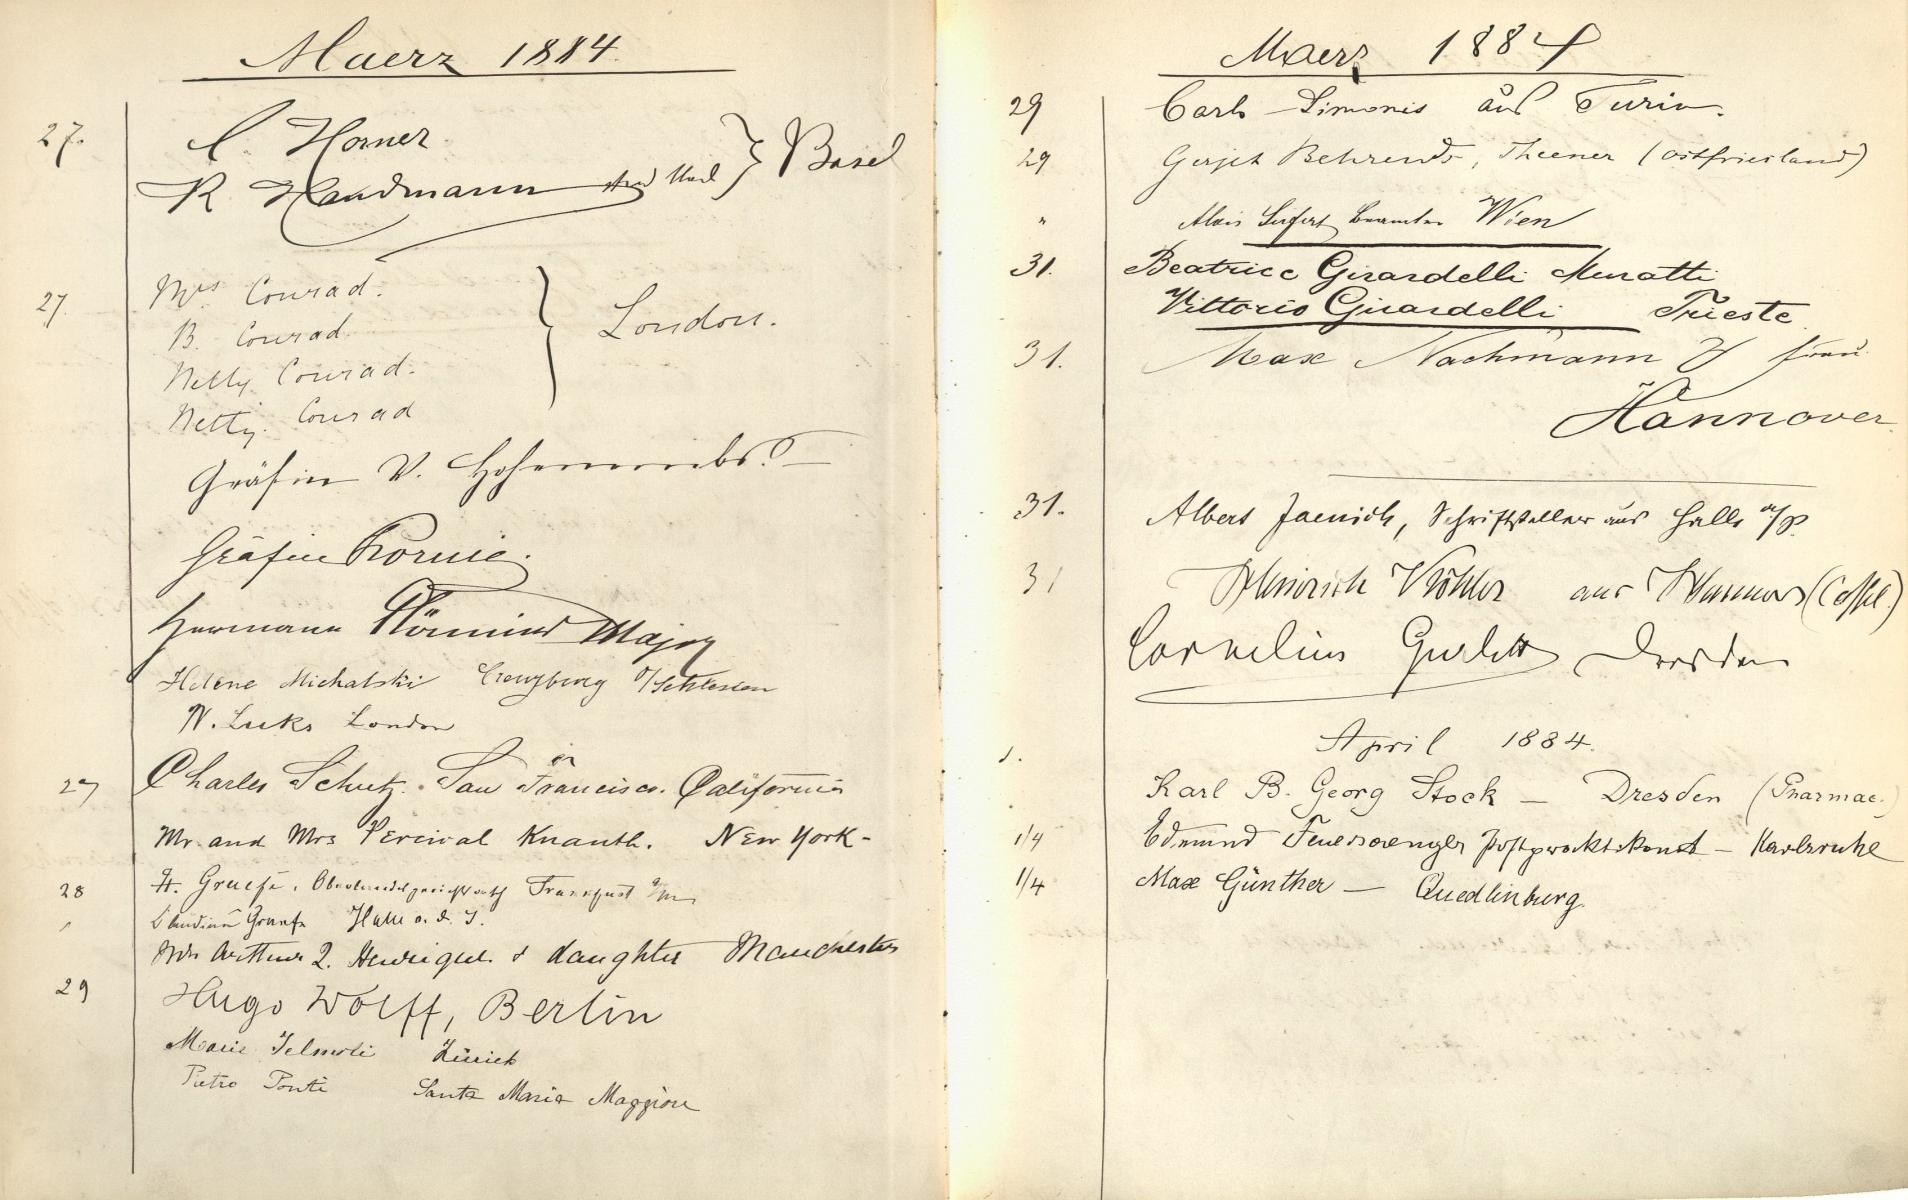 Maerz 1884.
27.
C. Horner
R Handmann
Basel
27.
Mrs Conrad.
B. Conrad.
Nelly Conrad.
Netty Conrad
London.
Gräfin v.
Gräfin
Hermann Major
Helene Michalski Creuzburg O/Schlesien
N. Luks London
27
Charles Schutz. San Francisco. California
Mr. and Mrs Percival Knauth. New York-
28
H. Graefe, Oberlandesgerichtsrath Frankfurt a/m
Graefe Halle a. d. S.
Mrs Arthur Q. Henriques & daughter Manchester
29
Hugo Wolff, Berlin
Marie Jelmoli Zürich
Pietro Ponti Santa Maria Maggiore
Maerz 1884
29
Carlo Simonis aus Turin.
29
Gerjet Behrends, Theener (Ostfriesland)
"
Alois Seifert Beamter Wien
31.
Beatrice Girardelli Muratti
Vittorio Girardelli Trieste
31.
Max Nachmann & Frau
Hannover.
31.
Albert Jaenich, Schriftsteller aus Halle a/S.
31
Heinrich Köhler aus (Cassel.)
Cornelius Gurlitt Dresden
April 1884.
1.
Karl B. Georg Stock — Dresden (Pharmac.)
1/4
Edmund Feuersaenger Postpraktikant – Karlsruhe
1/4
Max Günther — Quedlinburg.